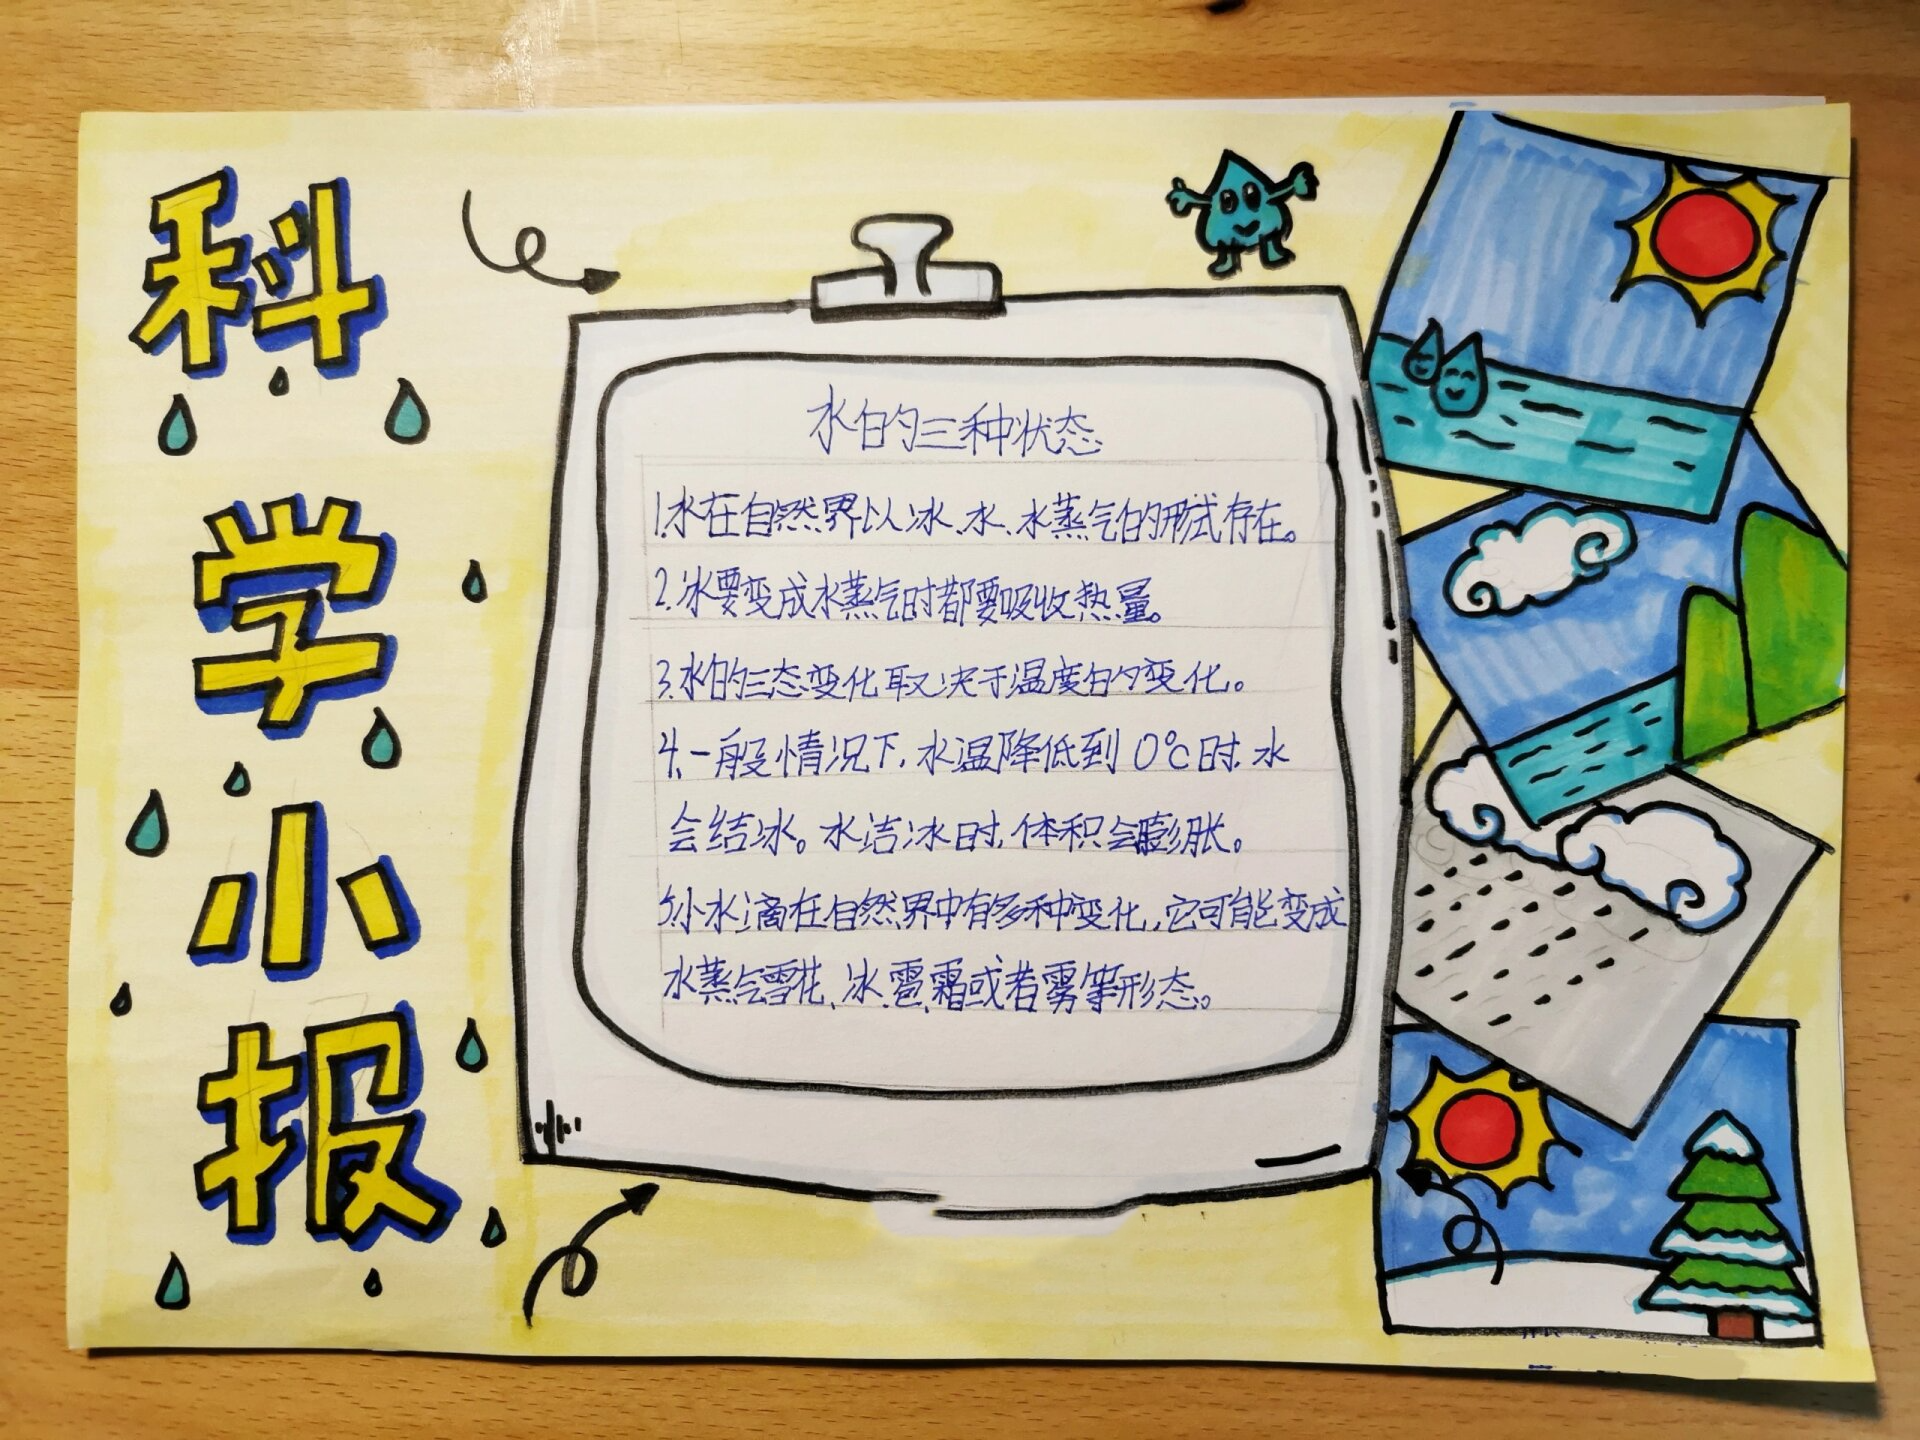 科学小报
水的三种状态
1.水在自然界以冰、水、水蒸气的形式存在。
2.冰要变成水蒸气时都要吸收热量。
3.水的三态变化取决于温度的变化。
4.一般情况下,水温降低到0℃时,水
会结冰。水洁冰时,体积会膨胀。
5.小水滴在自然界中有多种变化,它可能变成
水蒸气雪花、冰、雹、霜或者雾等形态。